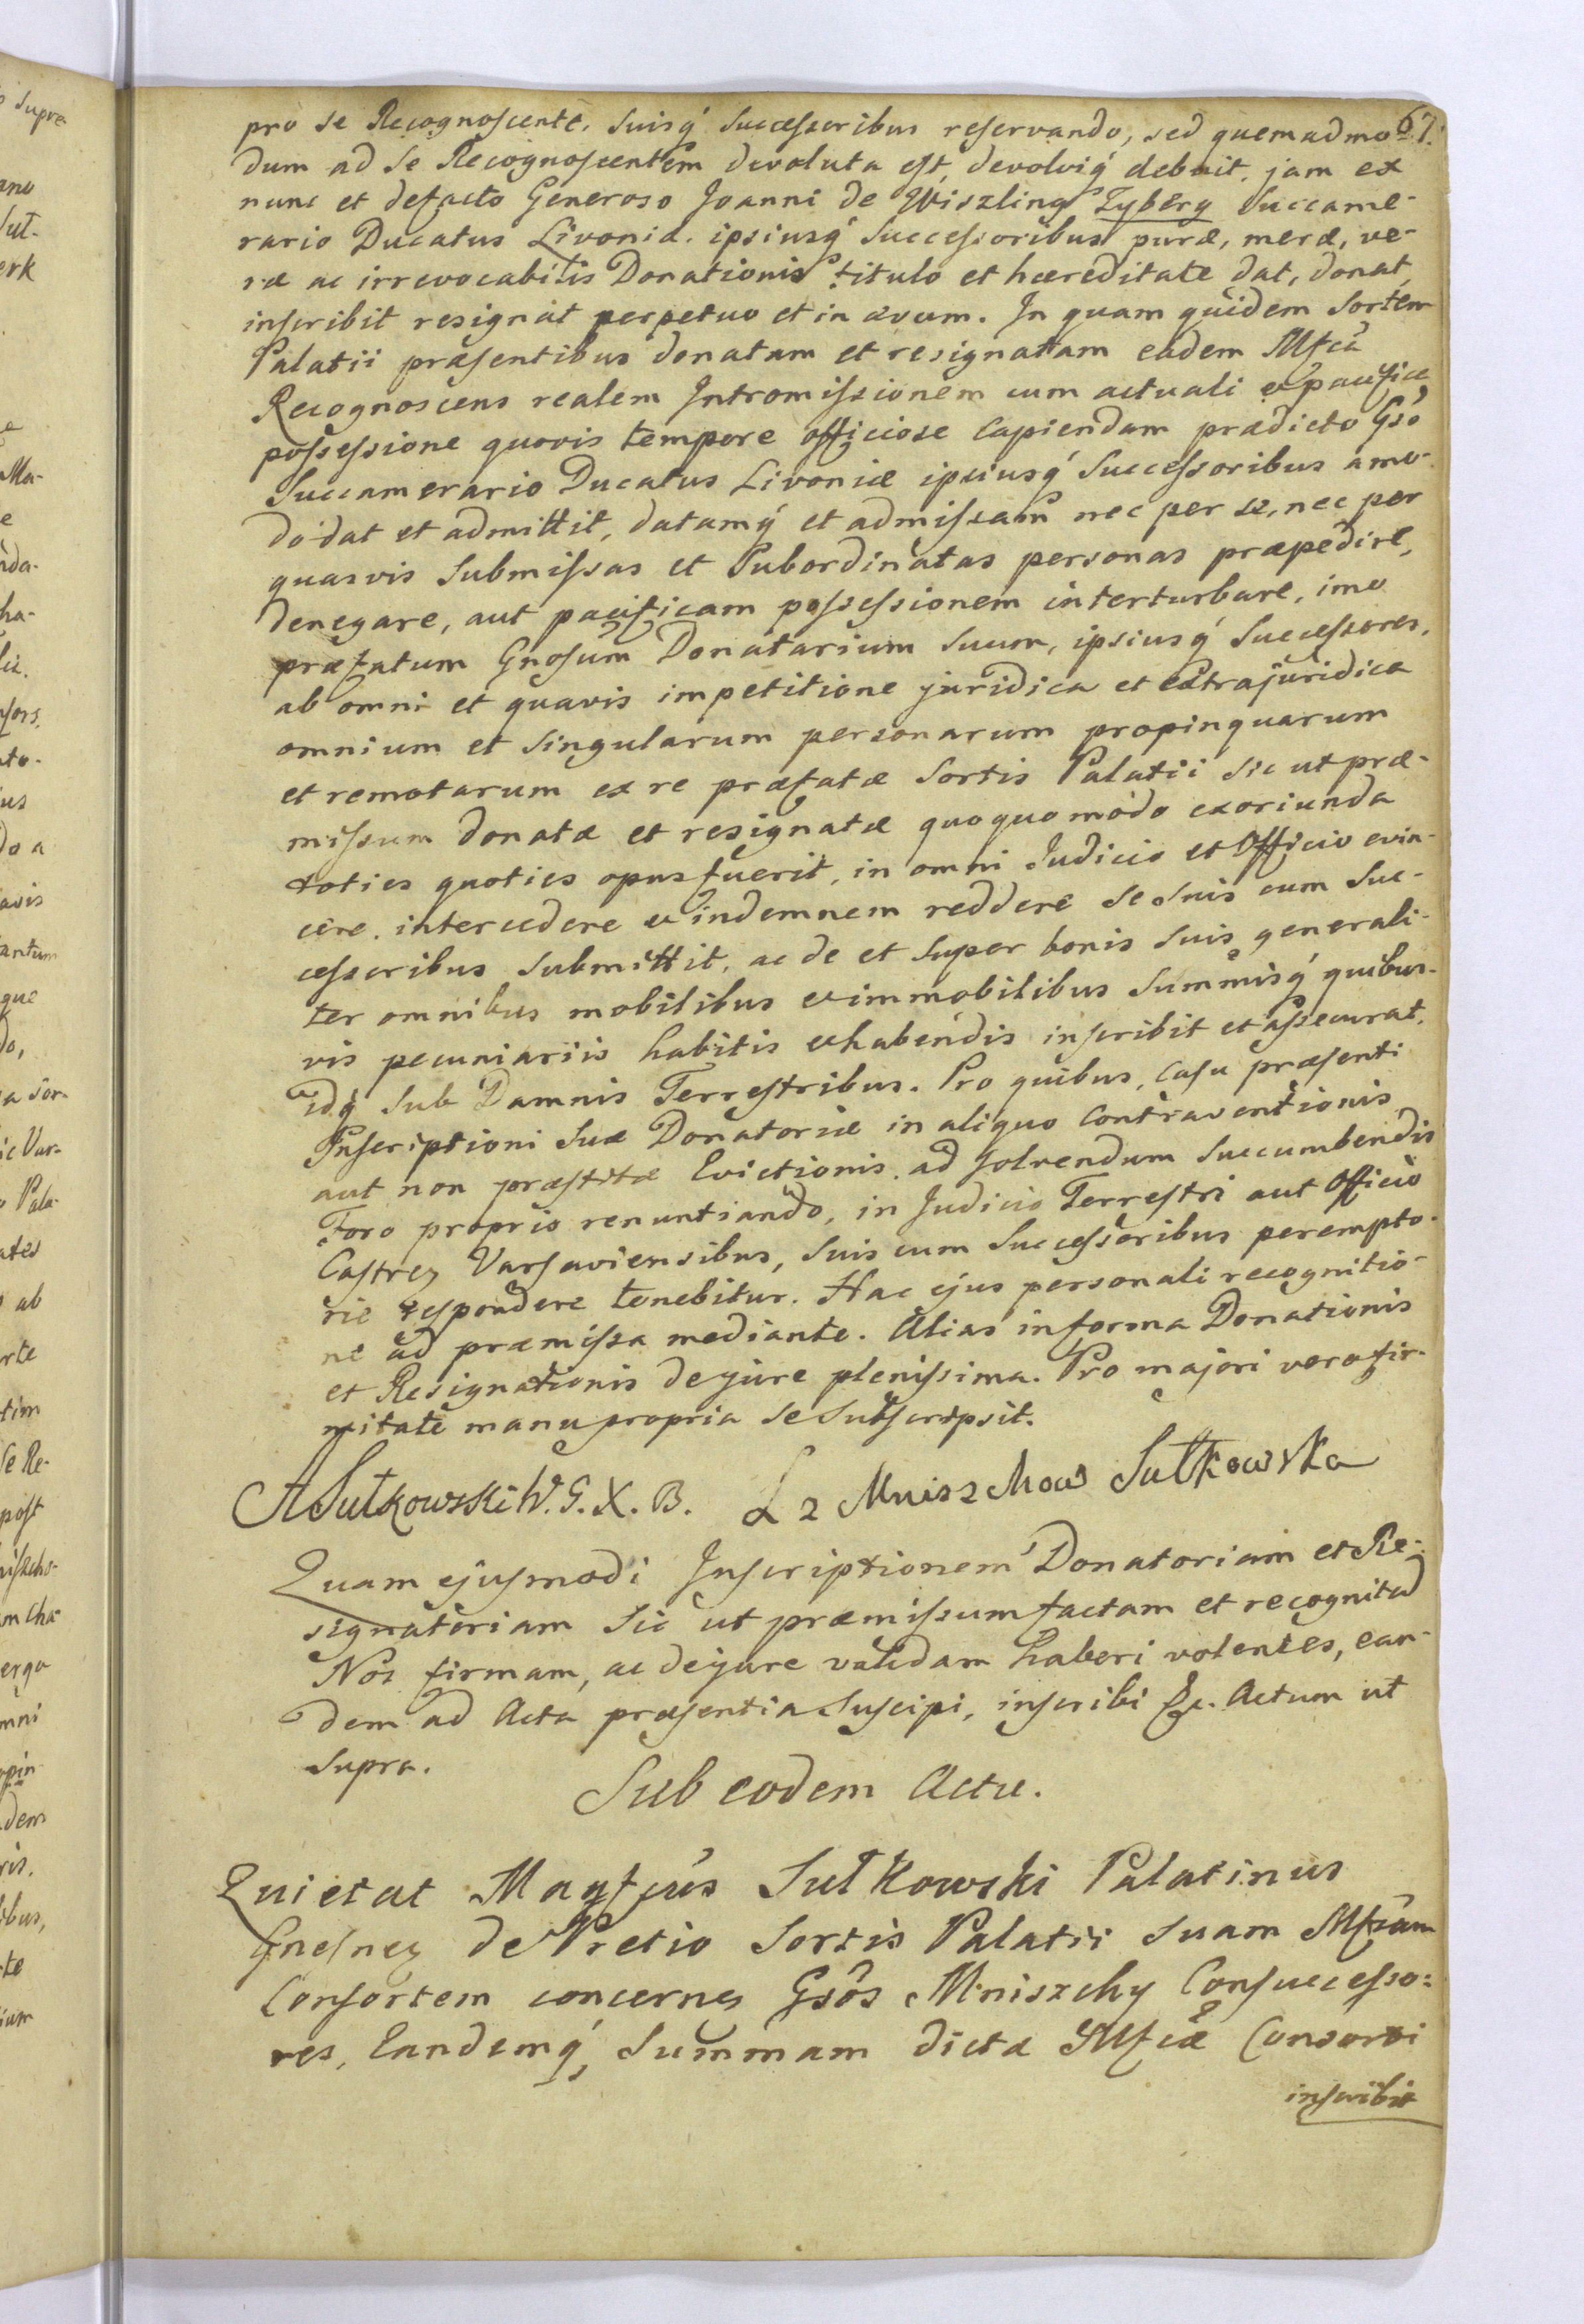 67.
pro se Recognoscente, suisq́ Successoribus reservando, sed quemadmo-
dum ad se Recognoscentem devoluta est, devolviq́ debuit, jam ex
nunc et defacto Generoso Joanni de Wiszling Zyberg Succame-
rario Ducatus Livoniæ ipsiusq́ Successoribus puræ, meræ, ve-
ræ ac irrevocabilis Donationis titulo et hæreditate dat, donat,
inscribit resignat perpetuo et in ævum. In quam quidem Sortem
Palatii præsentibus donatam et resignatam eadem Mfca
Recognoscens realem Intromissionem cum actuali et pacifica
possessione quovis tempore officiose Capiendam prædicto Gso
Succamerario Ducatus Livoniæ ipsiusq́ Successoribus amo-
do dat et admittit, datamq́ et admissam nec per se, nec per
quasvis submissas et subordinatas personas præpedire,
denegare, aut pacificam possessionem interturbare, imo
præfatum Gnosum Donatarium Suum, ipsiusq́ Successores,
ab omni et quavis impetitione juridica et extrajuridica
omnium et singularum personarum propinquarum
et remotarum ex re præfatæ Sortis Palatii sic ut præ-
missum donatæ et resignatæ quoquomodo exoriunda
toties quoties opus fuerit, in omni Judicio et Officio evin-
cere, intercedere et indemnem reddere se suis cum Suc-
cessoribus submittit, ac de et super bonis suis generali-
ter omnibus mobilibus et immobilibus Summisq́ quibus-
vis pecuniariis habitis et habendis inscribit et assecurat,
idq́ sub Damnis Terrestribus. Pro quibus, Casu præsenti
Inscriptioni Suæ Donatoriæ in aliquo Contraventionis
aut non præstitæ Evictionis, ad solvendum succumbendis
Foro proprio renuntiando, in Judicio Terrestri aut Officio
Castren Varsaviensibus, suis cum Successoribus perempto-
rie respondere tenebitur. Hac ejus personali recognitio-
ne ad præmissa mediante. Alias in forma Donationis
et Resignationis de jure plenissima. Pro majori vero fir-
mitate manu propria se subscripsit.
A Sułkowski W. G. X. B. L z Mniszchow Sułkowska
Quam ejusmodi Inscriptionem Donatoriam et Re-
signatoriam sic ut præmissum factam et recognitam
Nos firmam, ac de jure validam haberi volentes, ean-
dem ad Acta præsentia suscipi, inscribi &c. Actum ut
supra.
Sub eodem Actu.
Quietat Magfcus Sułkowski Palatinus
Gnesnen de Pretio Sortis Palatii suam Mfcam
Consortem concernen Gsos Mniszchy Consuccesso=
res, Eandemq́ Summam dictæ Mfcæ Consorti
inscribit